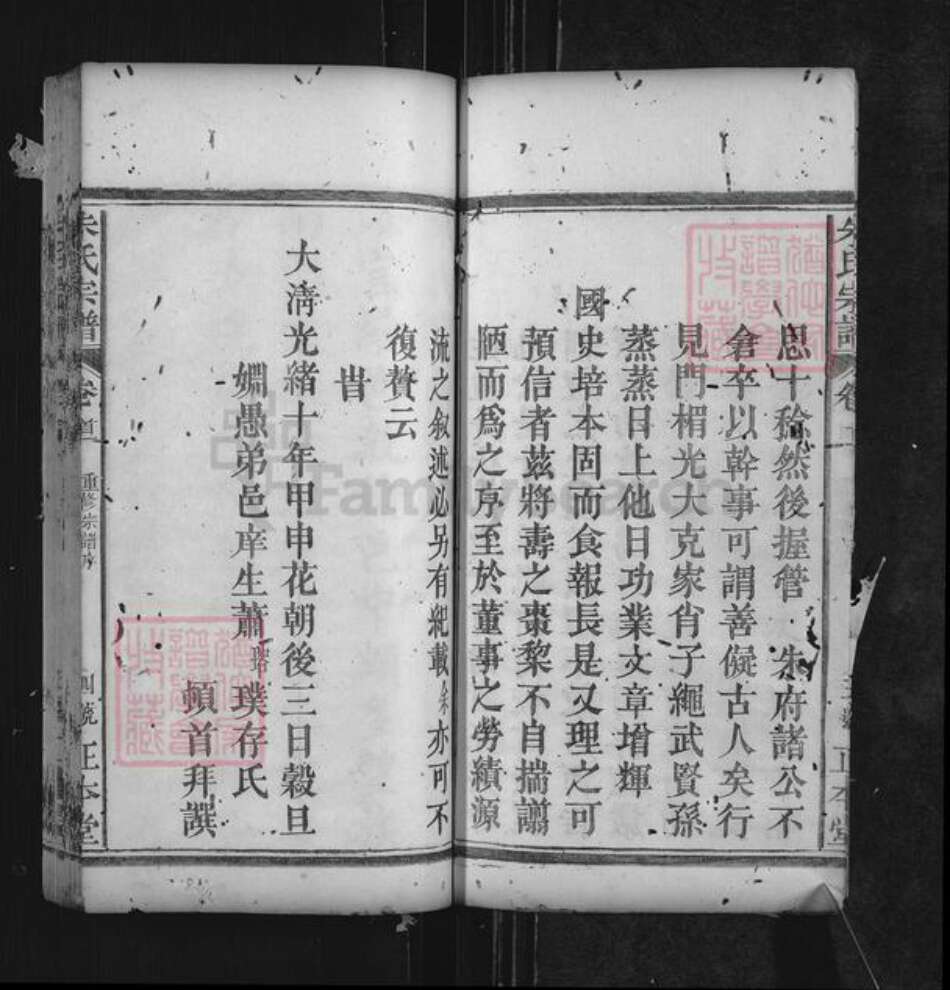 朱氏宗譜 卷
思十稔然後握管 朱府諸公不
倉卒以幹事可謂善儗古人矣行
見門楣光大克家肖子繩武賢孫
蒸蒸日上他日功業文章增輝
國史培本固而食報長是又理之可
預信者茲將壽之棗黎不自揣譾
陋而爲之序至於董事之勞績源
流之叙述必另有紀載余亦可不
復贅云
旹
大淸光緒十年甲申花朝後三日穀旦
婣愚弟邑庠生蕭瑢璞存氏
頓首拜譔
朱氏宗譜 卷首 重修宗譜序 四號 正本堂
FamilySearch